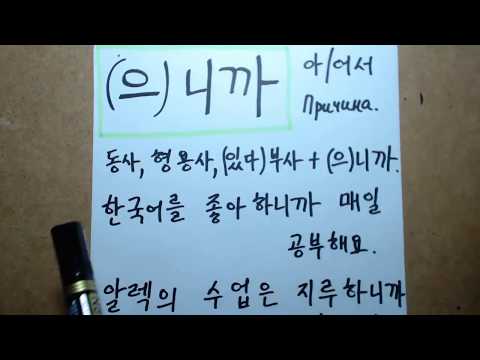 (으)니까
아/어서
Причина.
동사, 형용사, (있다)부사 + (으)니까.
한국어를 좋아하니까 매일
공부해요.
알렉의 수업은 지루하니까